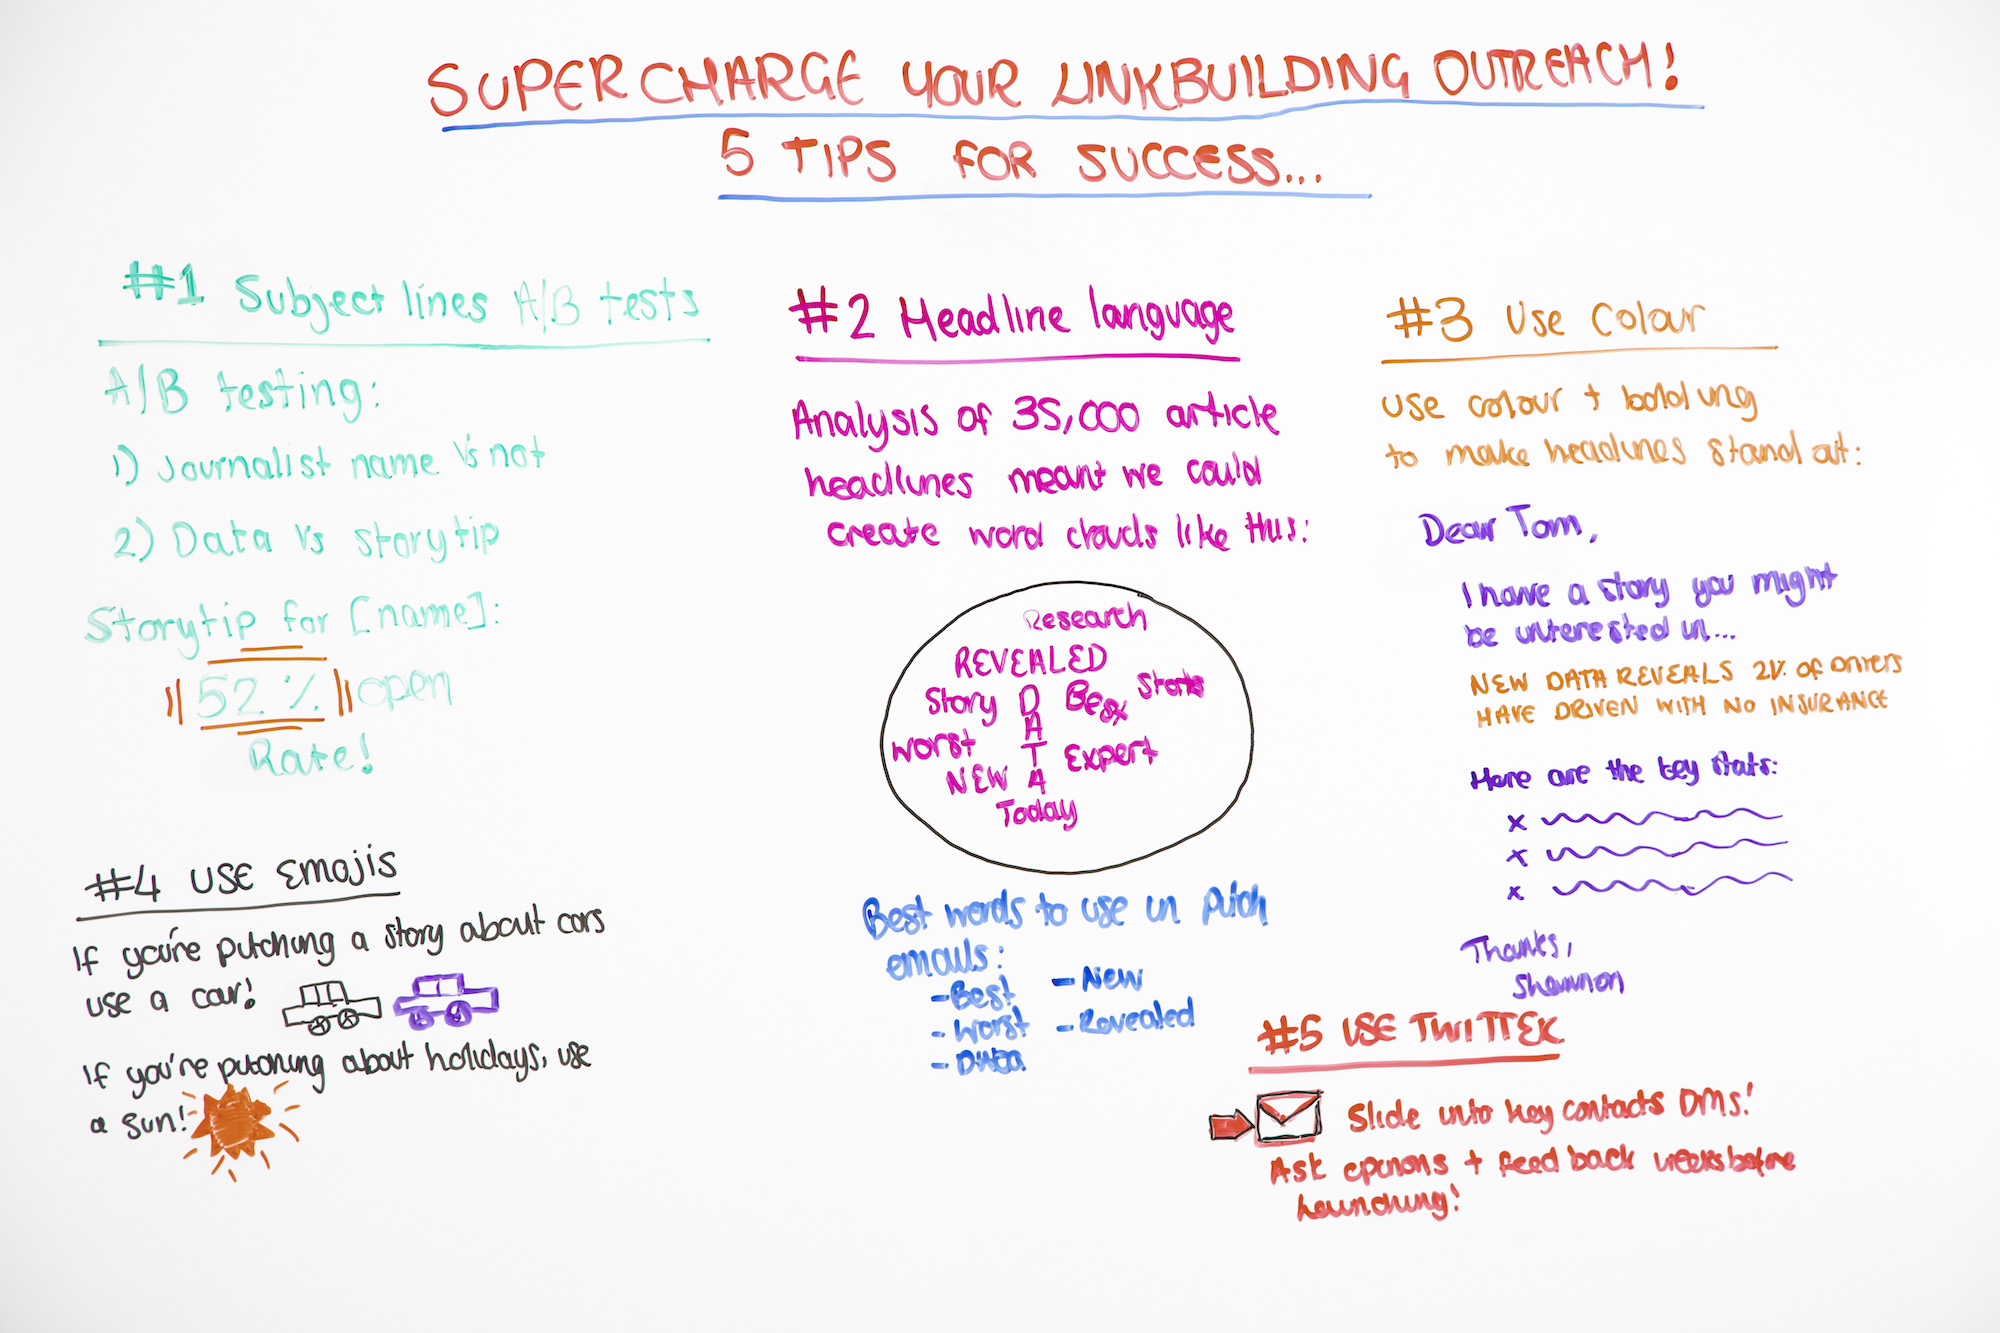 SUPERCHARGE YOUR LINKBUILDING OUTREACH!
5 TIPS FOR SUCCESS...
#1 Subject lines A/B tests
A/B testing:
1) Journalist name Vs not
2) Data Vs storytip
Storytip for [name]:
52% open
Rate!
#2 Headline language
Analysis of 35,000 article
headlines meant we could
create word clouds like this:
Research
REVEALED
Story DATA Best Stats
Worst
NEW Expert
Today
Best words to use in pitch
emails:
- Best
- Worst
- Data
- New
- Revealed
#3 Use Colour
Use colour + bolding
to make headlines stand out:
Dear Tom,
I have a story you might
be interested in...
NEW DATA REVEALS 2% OF DRIVERS
HAVE DRIVEN WITH NO INSURANCE
Here are the key stats:
x
x
x
Thanks,
Shannon
#4 USE Emojis
If you're pitching a story about cars
use a car!
If you're pitching about holidays, use
a sun!
#5 USE TWITTER
Slide into key contacts DMs!
Ask opinions + feedback weeks before
launching!